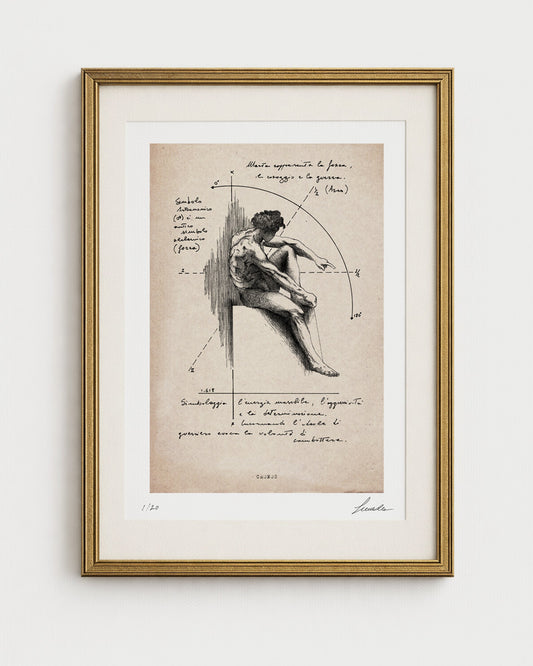 Marte rappresenta la forza,
il coraggio e la guerra.
0°
1/2 (Ares)
Simbolo
(♂) è un
antico
simbolo
(forza)
1/2
180°
1.618
Simboleggia l'energia maschile, l'aggressività
e la determinazione.
Incarnando l'ideale di
guerriero evoca la volontà di
combattere.
1/20